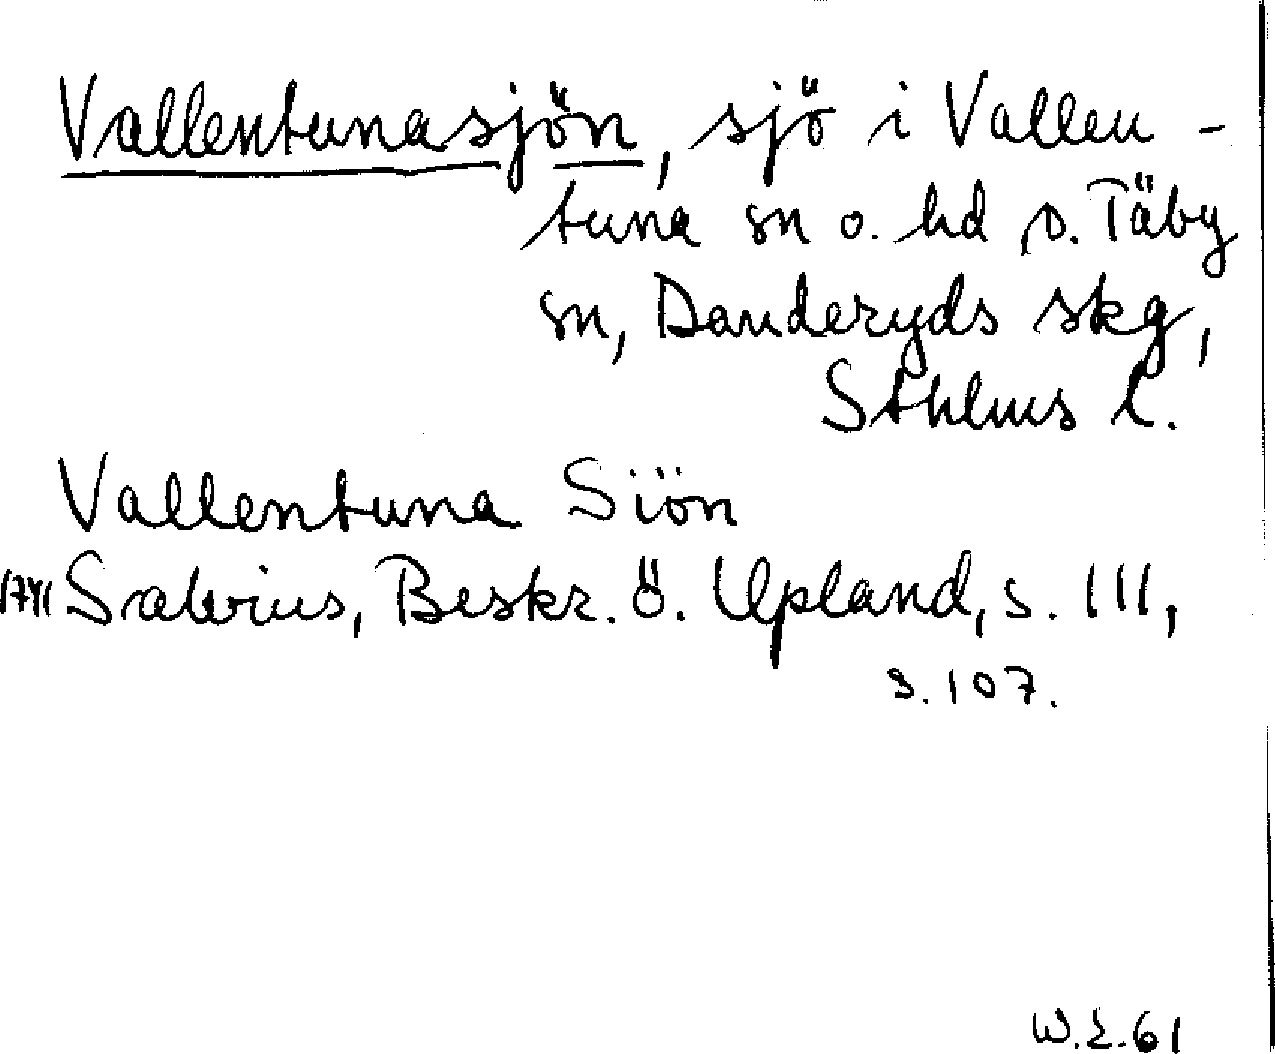 Vallentunasjön, sjö i Vallen-
tuna sn o. hd o. Täby
sn, Danderyds skg,
Sthlms l.
Vallentuna Siön
1741 Salvius, Beskr. ö. Upland, s. 111,
s. 107.
W.E. 61